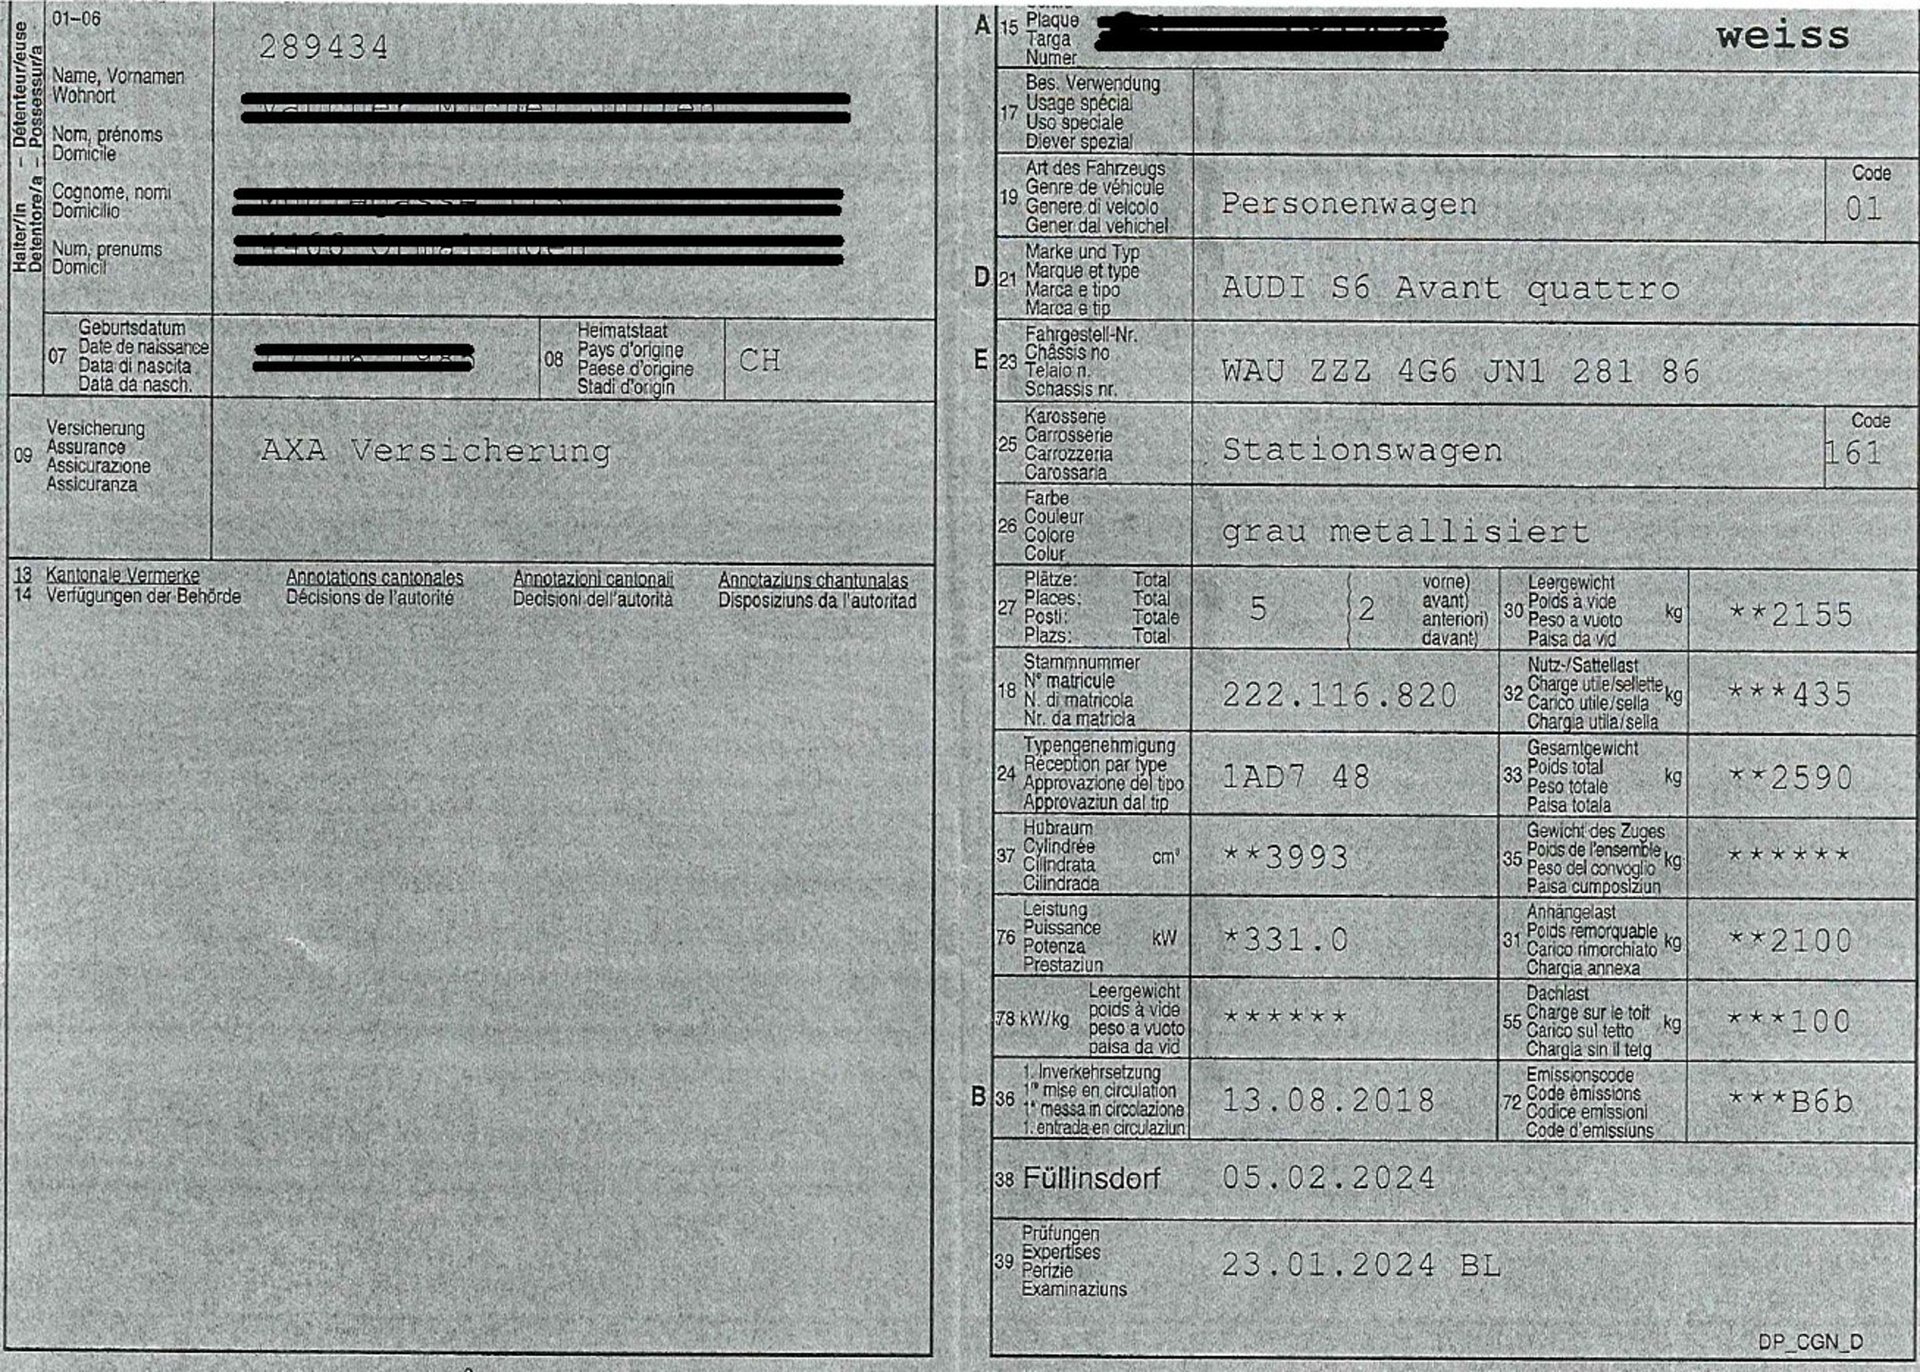 Halter/in – Détenteur/euse
Detentore/a – Possessur/a
01-06
289434
Name, Vornamen
Wohnort
Nom, prénoms
Domicile
Cognome, nomi
Domicilio
Num, prenums
Domicil
07
Geburtsdatum
Date de naissance
Data di nascita
Data da nasch.
08
Heimatstaat
Pays d'origine
Paese d'origine
Stadi d'origin
CH
09
Versicherung
Assurance
Assicurazione
Assicuranza
AXA Versicherung
13 Kantonale Vermerke Annotations cantonales Annotazioni cantonali Annotaziuns chantunalas
14 Verfügungen der Behörde Décisions de l'autorité Decisioni dell'autorità Disposiziuns da l'autoritad
A 15
Plaque
Targa
Numer
weiss
17
Bes. Verwendung
Usage spécial
Uso speciale
Diever spezial
19
Art des Fahrzeugs
Genre de véhicule
Genere di veicolo
Gener dal vehichel
Personenwagen
Code
01
D 21
Marke und Typ
Marque et type
Marca e tipo
Marca e tip
AUDI S6 Avant quattro
E 23
Fahrgestell-Nr.
Châssis no
Telaio n.
Schassis nr.
WAU ZZZ 4G6 JN1 281 86
25
Karosserie
Carrosserie
Carrozzeria
Carossaria
Stationswagen
Code
161
26
Farbe
Couleur
Colore
Colur
grau metallisiert
27
Plätze: Total
Places: Total
Posti: Totale
Plazs: Total
5
2
vorne)
avant)
anteriori)
davant)
30
Leergewicht
Poids à vide
Peso a vuoto
Paisa da vid
kg
**2155
18
Stammnummer
N° matricule
N. di matricola
Nr. da matricla
222.116.820
32
Nutz-/Sattellast
Charge utile/sellette
Carico utile/sella
Chargia utila/sella
kg
***435
24
Typengenehmigung
Réception par type
Approvazione del tipo
Approvaziun dal tip
1AD7 48
33
Gesamtgewicht
Poids total
Peso totale
Paisa totala
kg
**2590
37
Hubraum
Cylindrée
Cilindrata
Cilindrada
cm³
**3993
35
Gewicht des Zuges
Poids de l'ensemble
Peso del convoglio
Paisa cumposiziun
kg
******
76
Leistung
Puissance
Potenza
Prestaziun
kW
*331.0
31
Anhängelast
Poids remorquable
Carico rimorchiato
Chargia annexa
kg
**2100
78 kW/kg
Leergewicht
poids à vide
peso a vuoto
paisa da vid
******
55
Dachlast
Charge sur le toit
Carico sul tetto
Chargia sin il tetg
kg
***100
B 36
1. Inverkehrsetzung
1re mise en circulation
1a messa in circolazione
1. entrada en circulaziun
13.08.2018
72
Emissionscode
Code émissions
Codice emissioni
Code d'emissiuns
***B6b
38 Füllinsdorf 05.02.2024
39
Prüfungen
Expertises
Perizie
Examinaziuns
23.01.2024 BL
DP_CGN_D